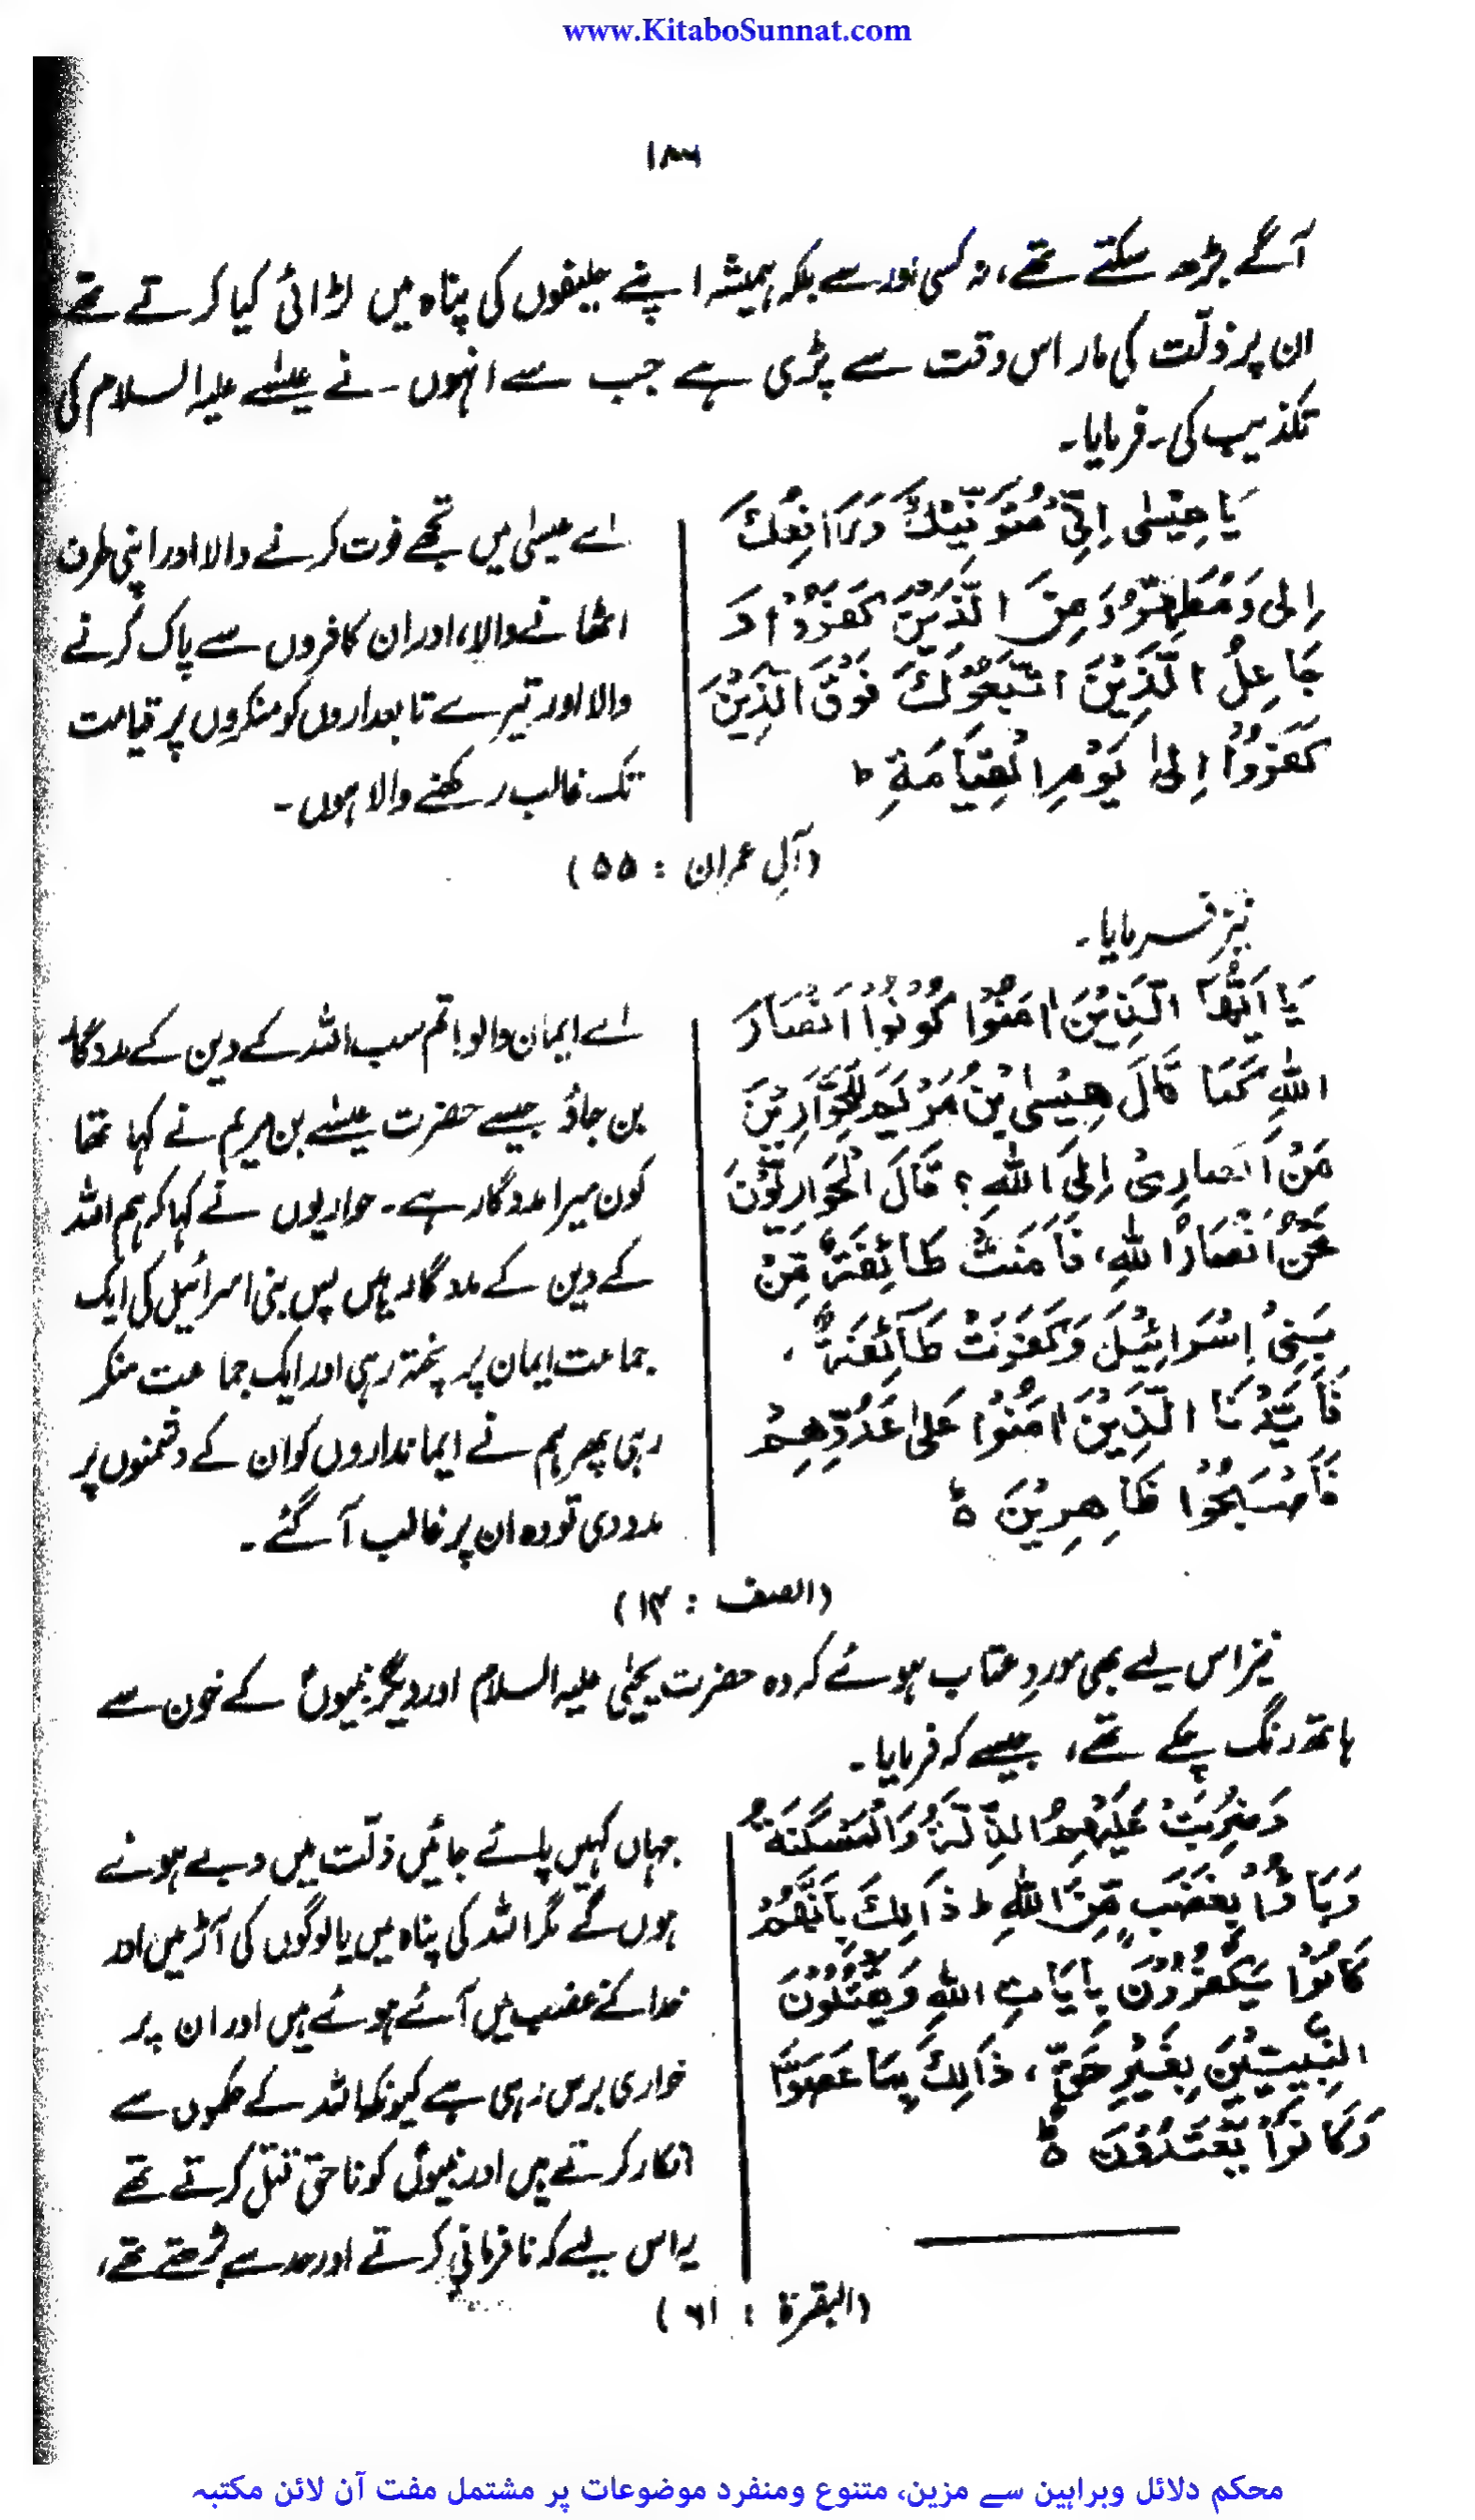 www.KitaboSunnat.com
۱۸۶
آگے بڑھ سکتے تھے، نہ کسی اور سے بلکہ ہمیشہ اپنے حلیفوں کی پناہ میں لڑائی کیا کرتے تھے
ان پر ذلّت کی مار اس وقت سے پڑی ہے جب سے انہوں۔ نے عیسٰے علیہ السلام کی
تکذیب کی۔ فرمایا۔
يَا عِيْسٰى اِنِّيْ مُتَوَفِّيْكَ وَرَافِعُكَ
اِلَيَّ وَمُطَهِّرُكَ مِنَ الَّذِيْنَ كَفَرُوْا وَ
جَاعِلُ الَّذِيْنَ اتَّبَعُوْكَ فَوْقَ الَّذِيْنَ
كَفَرُوْا اِلىٰ يَوْمِ الْقِيَامَةِ ط
اے عیسیٰ میں تجھے فوت کرنے والا اور اپنی طرف
اٹھانے والا، اور ان کافروں سے پاک کرنے
والا اور تیرے تابعداروں کو منکروں پر قیامت
تک غالب رکھنے والا ہوں۔
(آلِ عمران : ۵۵)
نیز فرمایا۔
يَا اَيُّهَا الَّذِيْنَ اٰمَنُوْا كُوْنُوْا اَنْصَارَ
اللهِ كَمَا قَالَ عِيْسٰى بْنُ مَرْيَمَ لِلْحَوَّارِيّٖنَ
مَنْ اَنْصَارِيْ اِلَى اللهِ ؟ قَالَ الْحَوَارِيُّوْنَ
نَحْنُ اَنْصَارُ اللهِ، فَاٰمَنَتْ طَائِفَةٌ مِّنْ
بَنِيْ اِسْرَائِيْلَ وَكَفَرَتْ طَآئِفَةٌ ،
فَاَيَّدْنَا الَّذِيْنَ اٰمَنُوْا عَلىٰ عَدُوِّهِمْ
فَاَصْبَحُوْا ظَاهِرِيْنَ ہ
اے ایمان والو! تم سب اللہ کے دین کے مددگار
بن جاؤ جیسے حضرت عیسٰے بن مریم نے کہا تھا
کون میرا مددگار ہے۔ حواریوں نے کہا کہ ہم اللہ
کے دین کے مددگار ہیں پس بنی اسرائیل کی ایک
جماعت ایمان پر پختہ رہی اور ایک جماعت منکر
رہی پھر ہم نے ایمانداروں کو ان کے دشمنوں پر
مدد دی تو وہ ان پر غالب آ گئے۔
(الصف : ۱۴)
نیز اس لیے بھی موردِ عتاب ہوئے کہ وہ حضرت یحیٰی علیہ السلام اور دیگر نبیوں کے خون سے
ہاتھ رنگ چکے تھے، جیسے کہ فرمایا۔
وَضُرِبَتْ عَلَيْهِمُ الذِّلَّةُ وَالْمَسْكَنَةُ
وَبَاءُوْا بِغَضَبٍ مِّنَ اللهِ ط ذَالِكَ بِاَنَّهُمْ
كَانُوْا يَكْفُرُوْنَ بِاٰيَاتِ اللهِ وَيَقْتُلُوْنَ
النَّبِيِّيْنَ بِغَيْرِ حَقٍّ ، ذَالِكَ بِمَا عَصَوْا
وَكَانُوْا يَعْتَدُوْنَ ہ
جہاں کہیں پائے جائیں ذلّت میں دبے ہوئے
ہوں گے مگر اللہ کی پناہ میں یا لوگوں کی آڑ میں اور
خدا کے غضب میں آئے ہوئے ہیں اور ان پر
خواری برس رہی ہے کیونکہ اللہ کے حکموں سے
انکار کرتے ہیں اور نبیوں کو ناحق قتل کرتے تھے
یہ اس لیے کہ نافرمانی کرتے اور حد سے بڑھتے تھے،
(البقرۃ : ۶۱)
محکم دلائل وبراہین سے مزین، متنوع ومنفرد موضوعات پر مشتمل مفت آن لائن مکتبہ